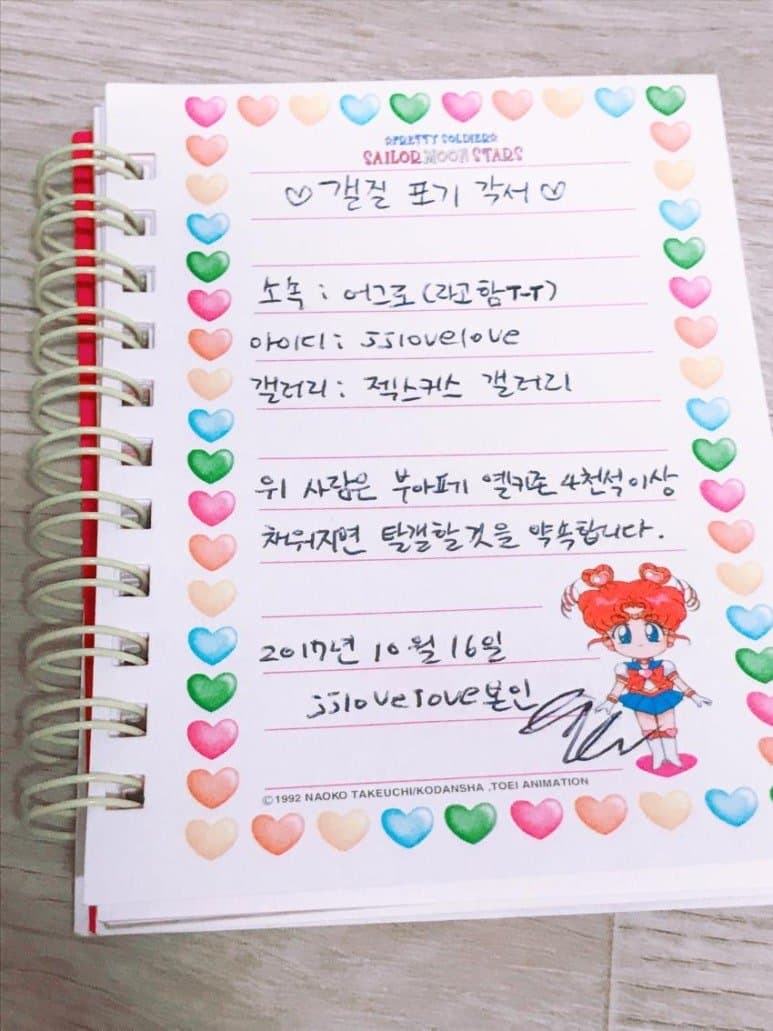 ☆PRETTY SOLDIER☆
SAILOR MOON STARS
♡갤질 포기 각서♡
소속 : 어그로(라고함T-T)
아이디 : jjlovelove
갤러리 : 젝스키스 갤러리
위 사람은 부아포기 옐키존 4천석이상
채워지면 탈갤할것을 약속합니다.
2017년 10월 16일
jjlovelove본인
©1992 NAOKO TAKEUCHI/KODANSHA ,TOEI ANIMATION